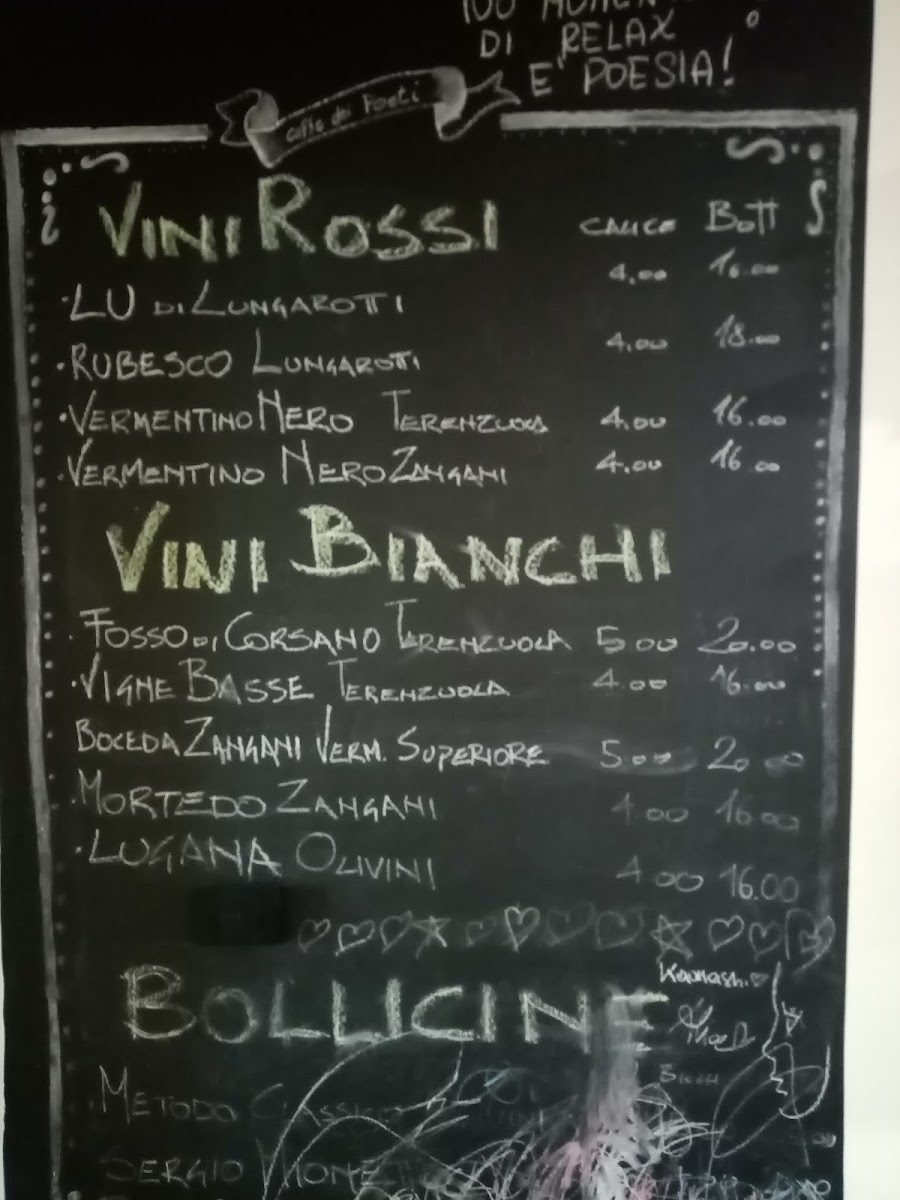 TUO MOMEN
DI RELAX
E' POESIA!
Caffe dei Poeti
VINI ROSSI CALICE BOTT
·LU DI LUNGAROTTI 4.00 16.00
·RUBESCO LUNGAROTTI 4.00 18.00
·VERMENTINO NERO TERENZUOLA 4.00 16.00
·VERMENTINO NERO ZANGANI 4.00 16.00
VINI BIANCHI
·FOSSO DI CORSANO TERENZUOLA 5.00 20.00
·VIGNE BASSE TERENZUOLA 4.00 16.00
BOCEDA ZANGANI VERM. SUPERIORE 5.00 20.00
·MORTEDO ZANGANI 4.00 16.00
·LUGANA OLIVINI 4.00 16.00
BOLLICINE
METODO CLASSICO
SERGIO MIONETTO